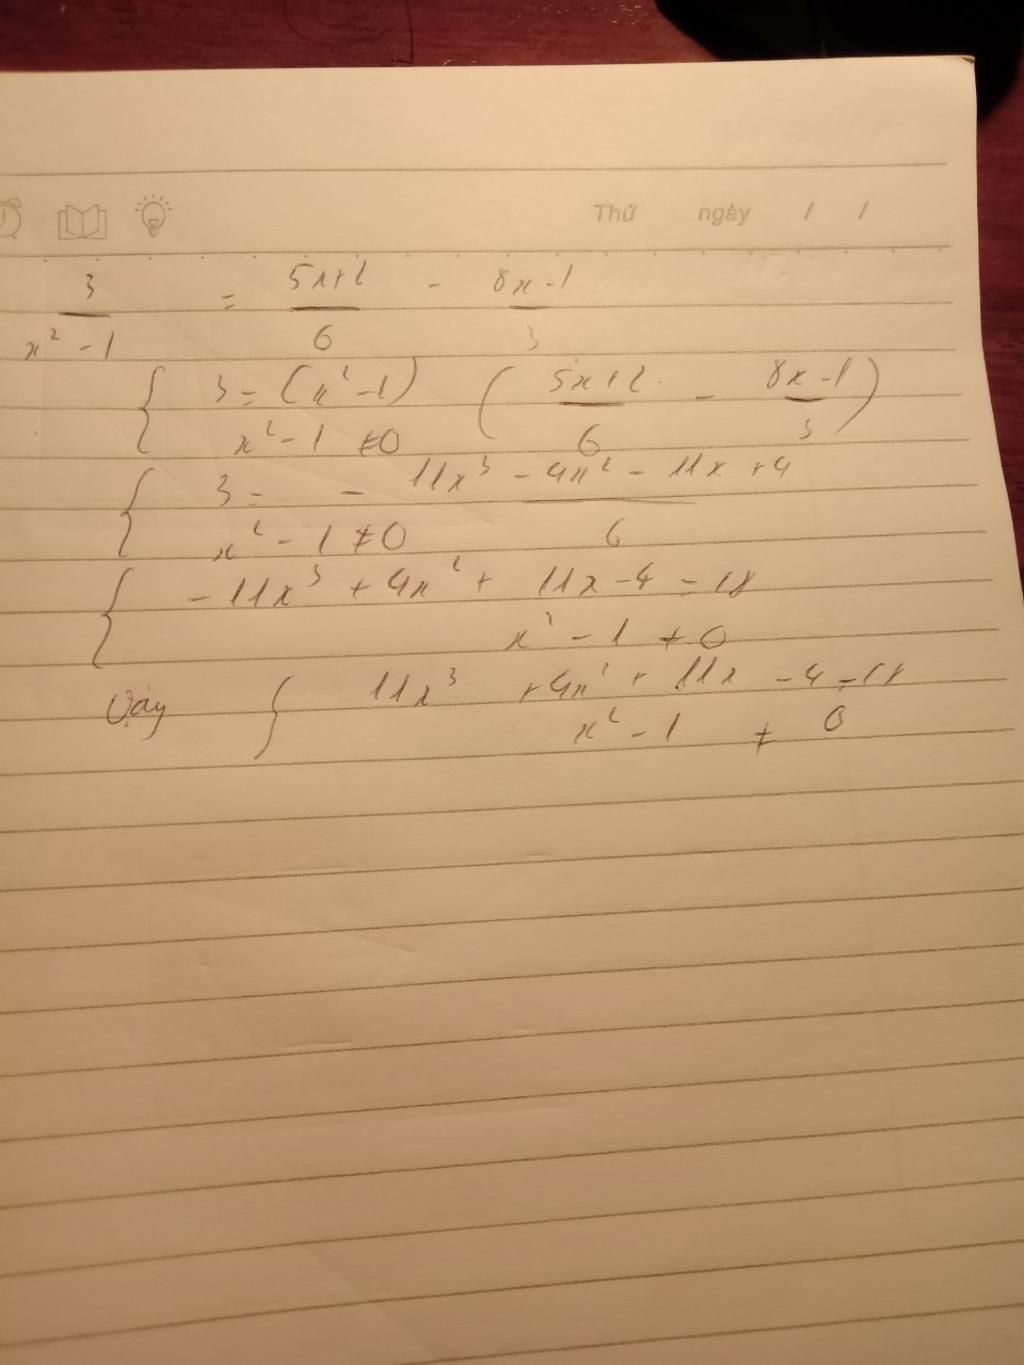 Thứ ngày / /
3 / (x² - 1) = (5x+2) / 6 - (8x-1) / 3
{ 3 = (x² - 1) ( (5x+2) / 6 - (8x-1) / 3 )
x² - 1 ≠ 0
{ 3 = - (11x³ - 4x² - 11x + 4) / 6
x² - 1 ≠ 0
{ -11x³ + 4x² + 11x - 4 = 18
x² - 1 ≠ 0
Vậy { 11x³ + 4x² + 11x - 4 = 18
x² - 1 ≠ 0